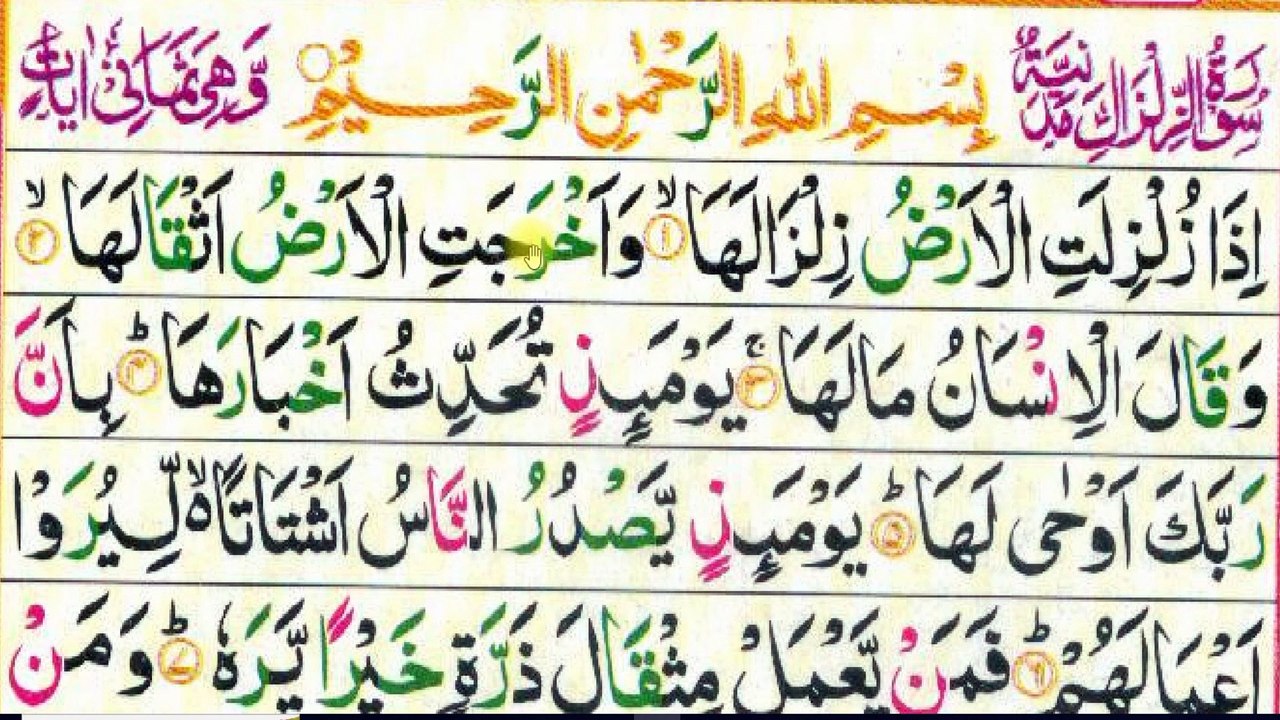 سُوْرَةُ الزِّلْزَالِ مَدَنِيَّةٌ بِسْمِ اللهِ الرَّحْمٰنِ الرَّحِيْمِ وَّهِىَ ثَمَانِىْ اٰيَاتٍ
اِذَا زُلْزِلَتِ الْاَرْضُ زِلْزَالَهَا ۙ﴿۱﴾ وَاَخْرَجَتِ الْاَرْضُ اَثْقَالَهَا ۙ﴿۲﴾
وَقَالَ الْاِنْسَانُ مَالَهَا ۚ﴿۳﴾ يَوْمَىِٕذٍ تُحَدِّثُ اَخْبَارَهَا ؕ﴿۴﴾ بِاَنَّ
رَبَّكَ اَوْحٰى لَهَا ؕ﴿۵﴾ يَوْمَىِٕذٍ يَّصْدُرُ النَّاسُ اَشْتَاتًا ۙ۬ لِّيُرَوْا
اَعْمَالَهُمْ ؕ﴿۶﴾ فَمَنْ يَّعْمَلْ مِثْقَالَ ذَرَّةٍ خَيْرًا يَّرَهٗ ؕ﴿۷﴾ وَمَنْ